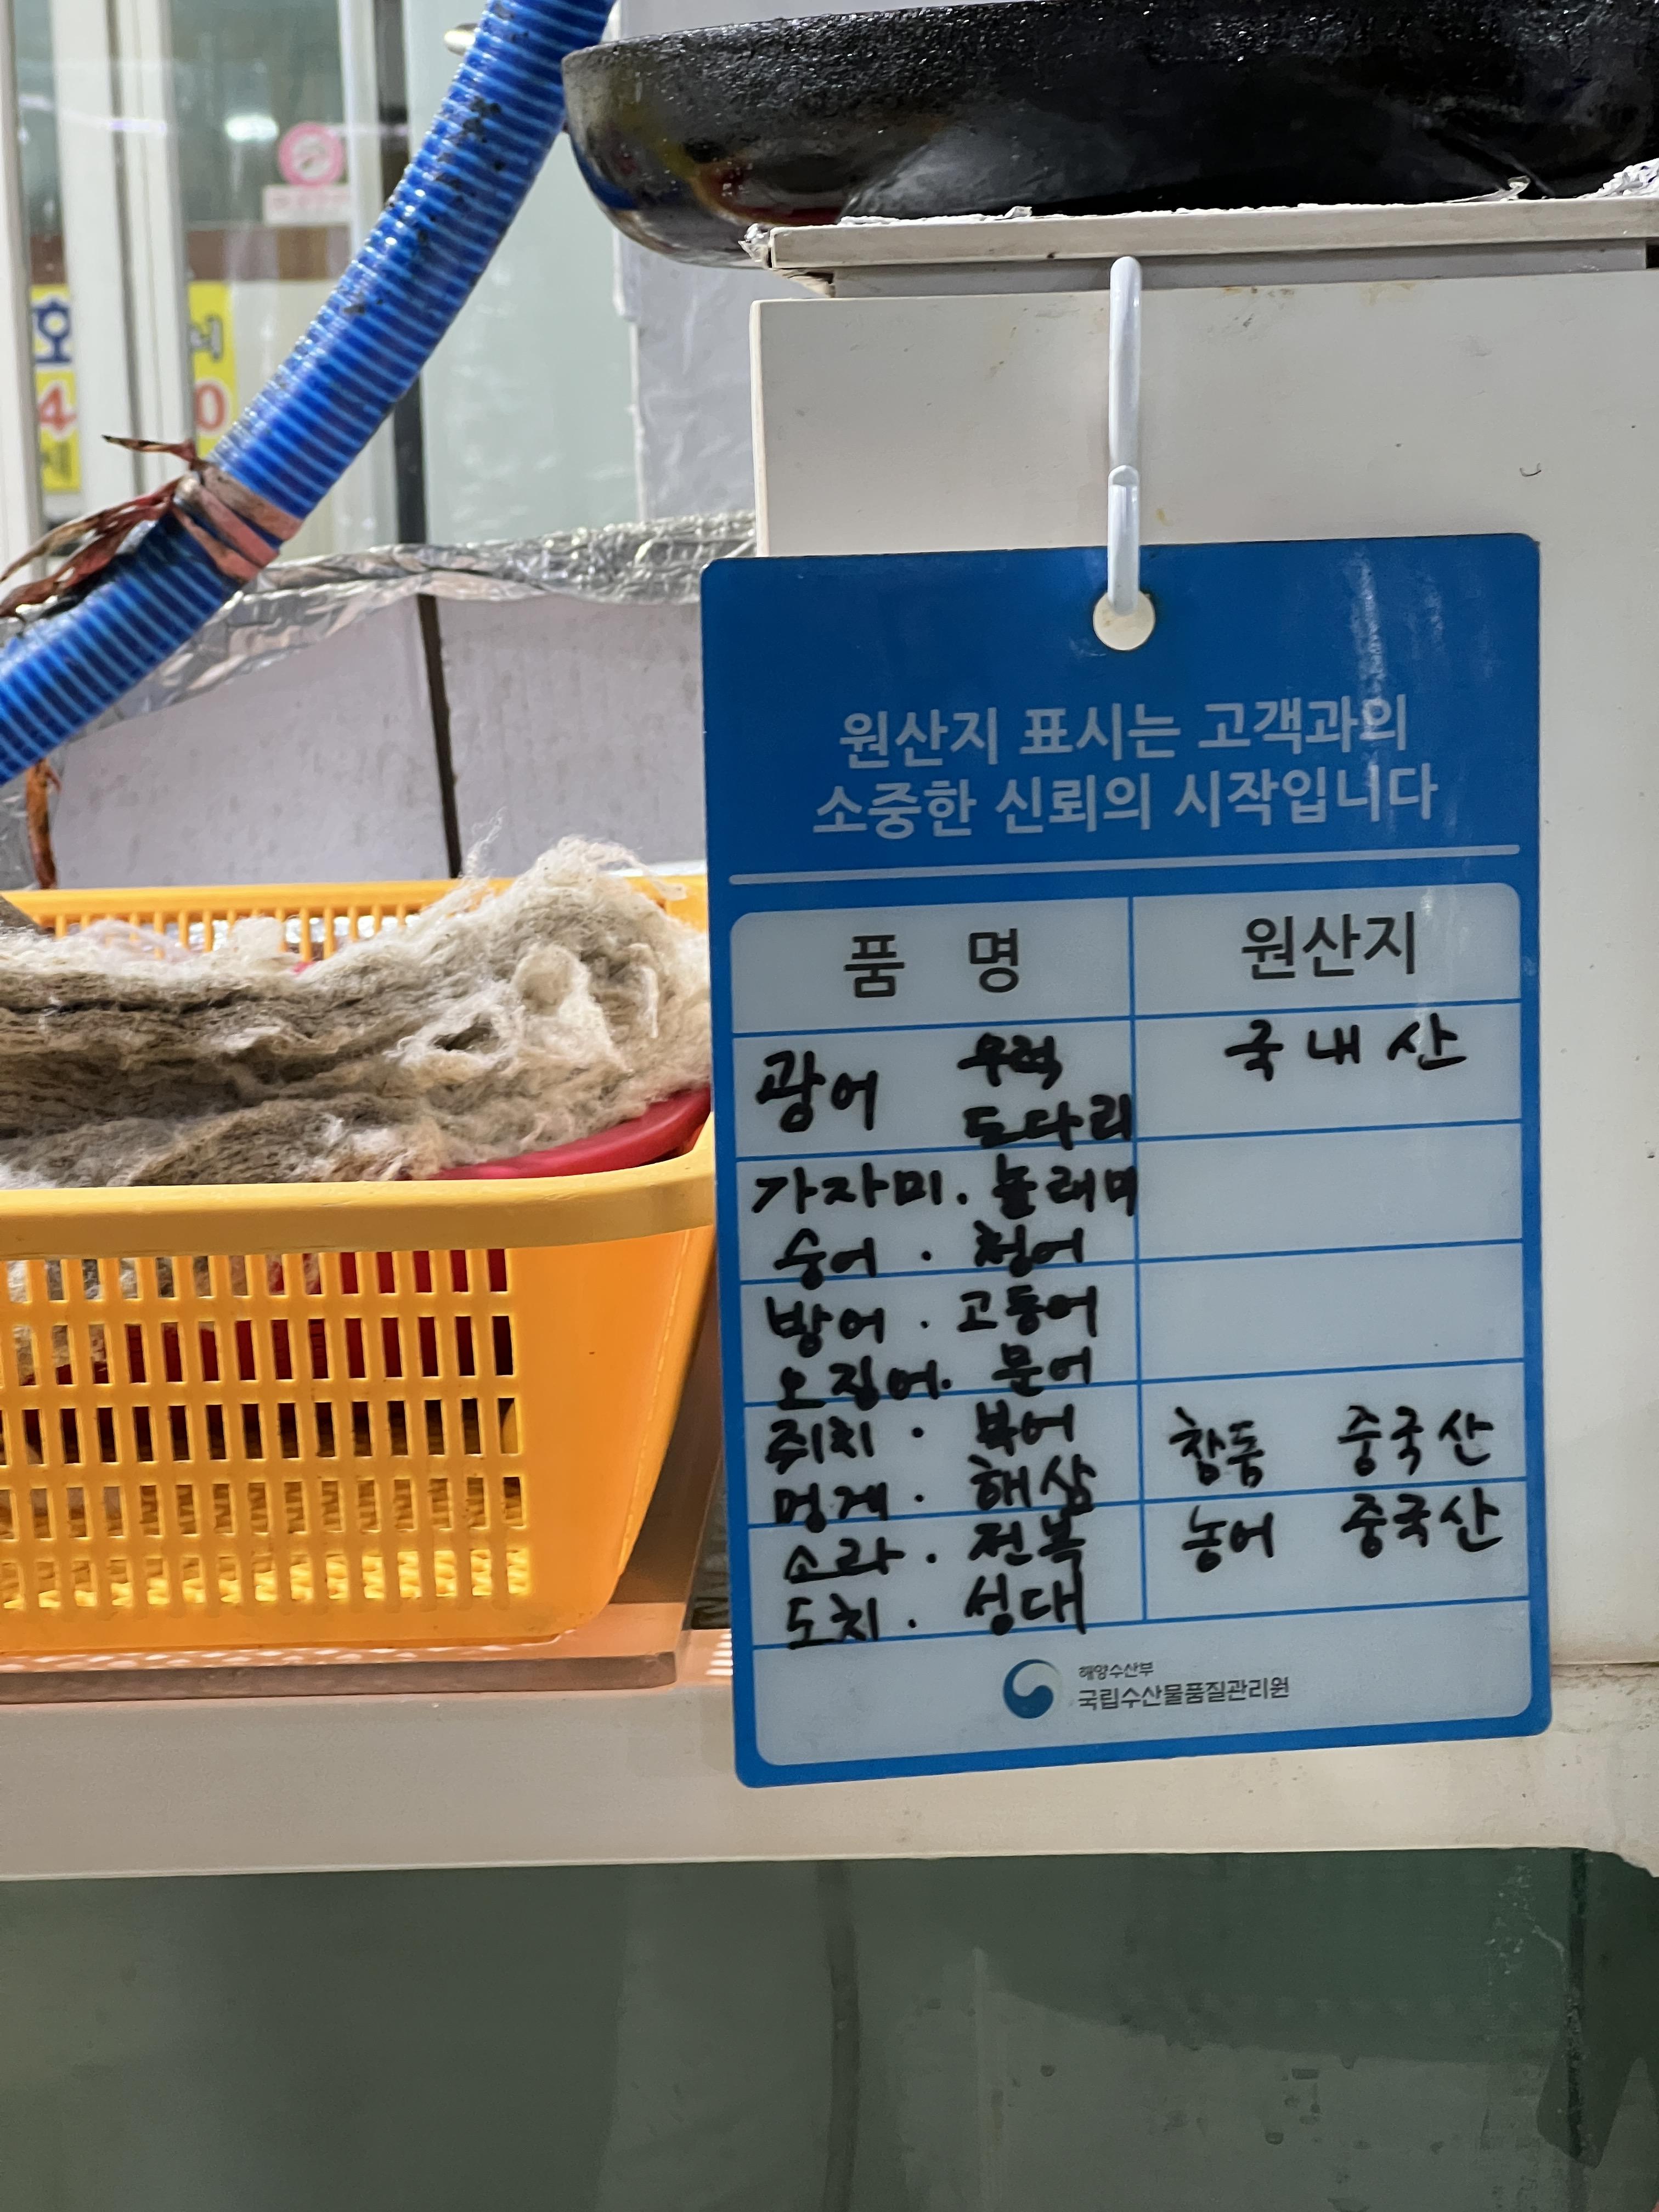 호
4
0
원산지 표시는 고객과의
소중한 신뢰의 시작입니다
품 명 원산지
광어 우럭 국내산
도다리
가자미 . 놀래미
숭어 . 청어
방어 . 고등어
오징어 . 문어
쥐치 . 복어 참돔 중국산
멍게 . 해삼
소라 . 전복 농어 중국산
도치 . 성대
해양수산부
국립수산물품질관리원